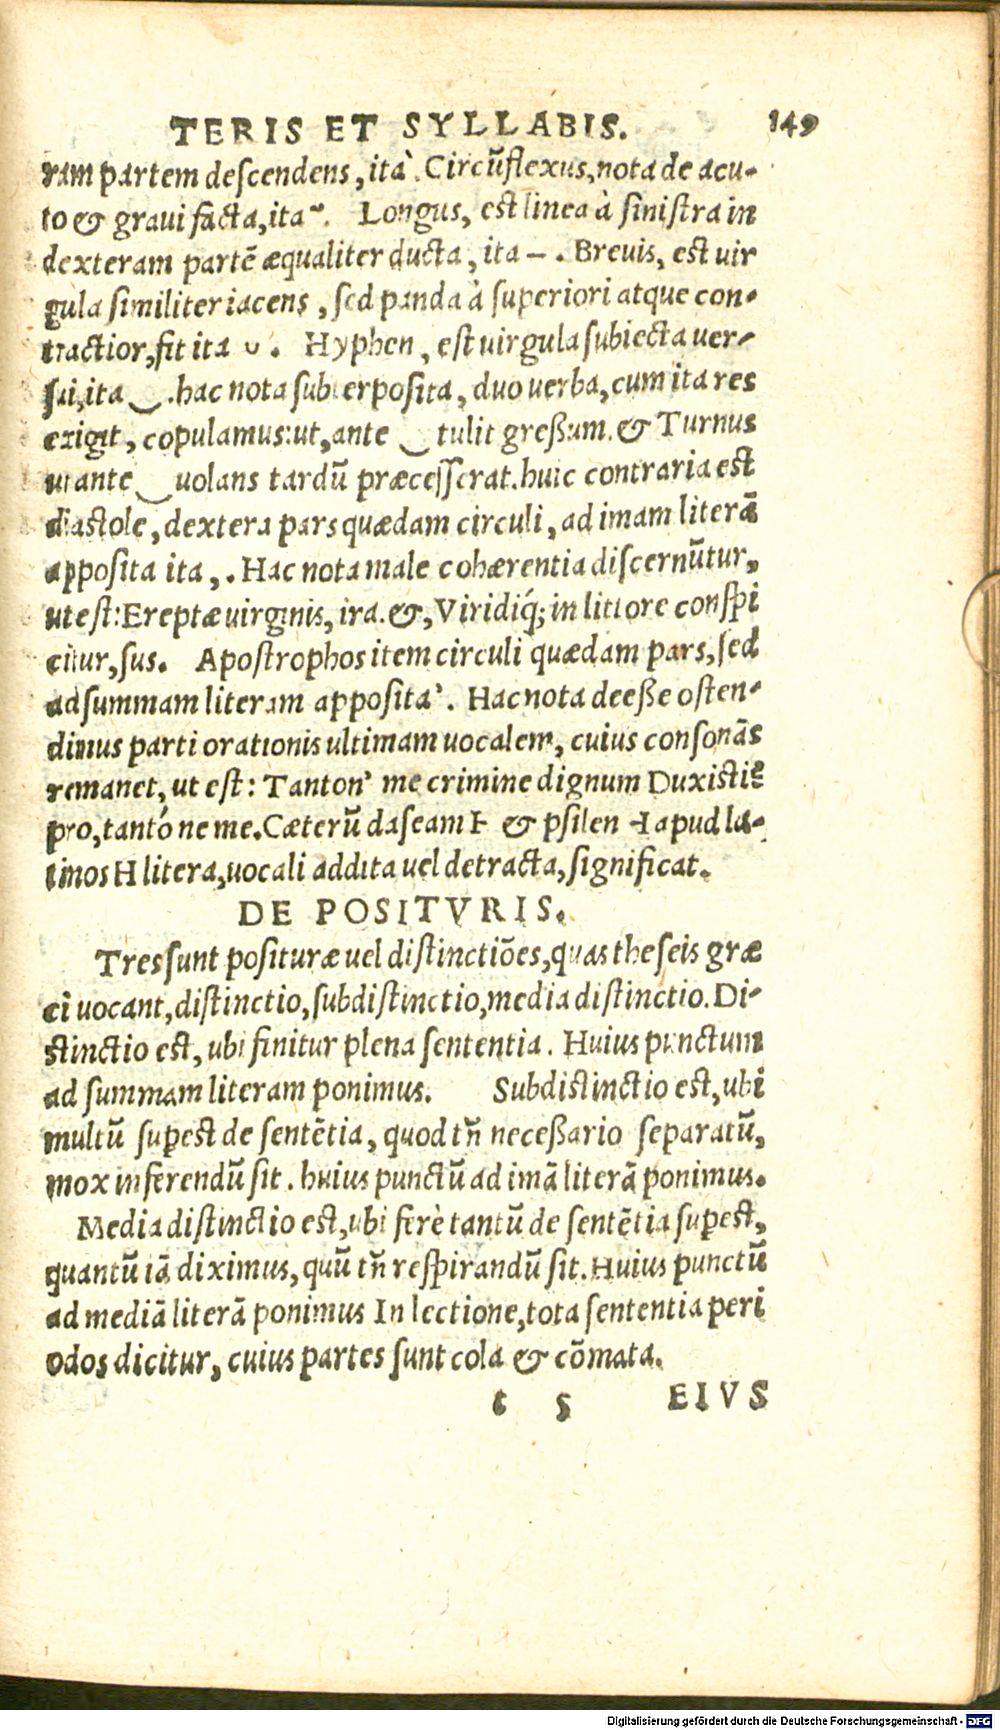 TERIS ET SYLLABIS. 149
ram partem deſcendens, ita`. Circūflexus, nota de acu-
to & graui facta, ita ῀. Longus, est linea à ſiniſtra in
dexteram partē æqualiter ducta, ita – . Breuis, est uir
gula ſimiliter iacens, ſed panda à ſuperiori atque con-
tractior, fit ita ᴗ . Hyphen, eſt uirgula ſubiecta uer-
ſui, ita ‿ . hac nota ſubterpoſita, duo uerba, cum ita res
exigit, copulamus: ut, ante ‿ tulit greßum. & Turnus
ut ante ‿ uolans tardū præceſſerat. huic contraria est
diastole, dextera pars quædam circuli, ad imam literā
appoſita ita , . Hac nota male cohærentia diſcernūtur,
ut eſt: Ereptæ uirginis, ira. &, Viridiq́; in littore conſpi
citur, ſus. Apoſtrophos item circuli quædam pars, ſed
ad ſummam literam appoſita ’. Hac nota deeße oſten-
dimus parti orationis ultimam uocalem, cuius conſonās
remanet, ut eſt: Tanton’ me crimine dignum Duxisti?
pro, tantóne me. Cæterū daſeam Ⱶ & pſilen ꟶ apud la-
tinos H litera, uocali addita uel detracta, ſignificat.
DE POSITVRIS.
Tres ſunt poſituræ uel diſtinctiões, quas theſeis græ
ci uocant, diſtinctio, ſubdiſtinctio, media diſtinctio. Di-
stinctio est, ubi finitur plena ſententia. Huius punctum
ad ſummam literam ponimus. Subdiſtinctio est, ubi
multū ſuꝑest de ſentētia, quod tñ neceßario ſeparatū,
mox inferendū ſit. huius punctū ad imā literā ponimus.
Media diſtinctio est, ubi ferè tantū de ſentētia ſuꝑest,
quantū iā diximus, quū tñ reſpirandū ſit. Huius punctū
ad mediā literā ponimus In lectione, tota ſententia peri
odos dicitur, cuius partes ſunt cola & cōmata.
t 5 EIVS
Digitalisierung gefördert durch die Deutsche Forschungsgemeinschaft - DFG